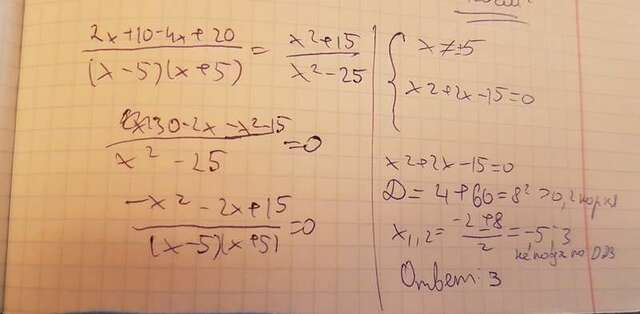 (2x+10-4x+20)/((x-5)(x+5)) = (x²+15)/(x²-25)
(30-2x-x²-15)/(x²-25) = 0
(-x²-2x+15)/((x-5)(x+5)) = 0
x≠±5
x²+2x-15=0
x²+2x-15=0
D=4+60=8²>0, 2 корня
x₁,₂=(-2±8)/2=-5; 3
не подх по ОДЗ
Ответ: 3